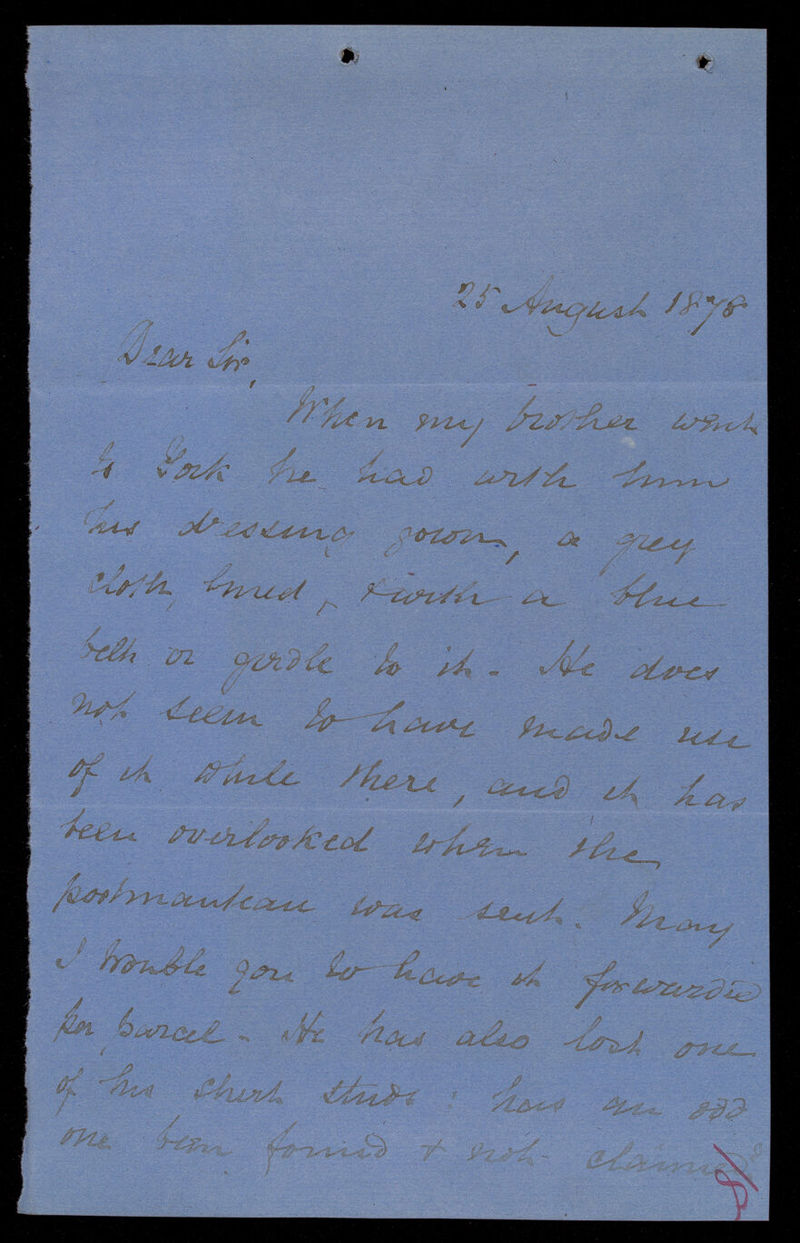 25 August 1878
Dear Sir,
When my brother went
to York he had with him
his dressing gown, a grey
cloth, lined, & with a blue
belt or girdle to it. He does
not seem to have made use
of it while there, and it has
been overlooked when the
portmanteau was sent. May
I trouble you to have it forwarded
per parcel - He has also lost one
of his shirt studs: has an odd
one been found & not claimed?